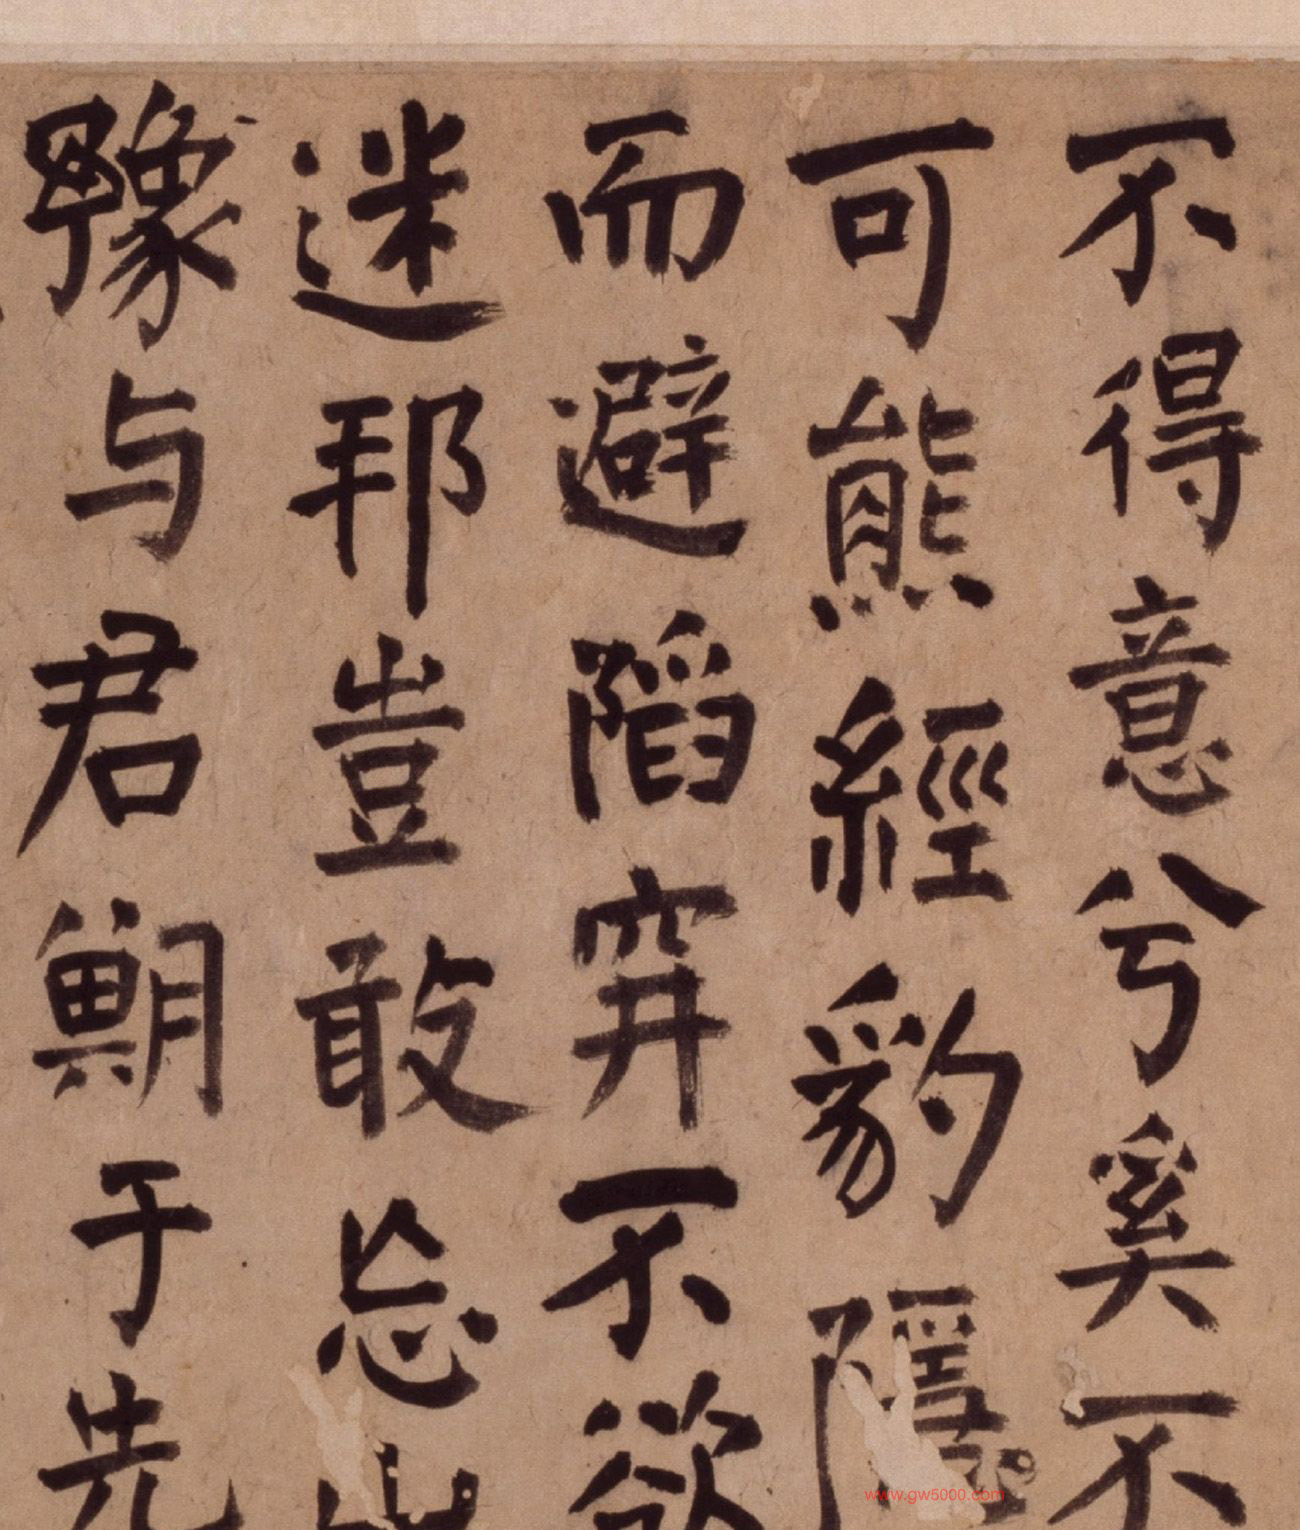 不得意兮奚不
可熊經豹隱
而避陷穽不欲
迷邦豈敢忘
豫与君期于先
www.gw5000.com